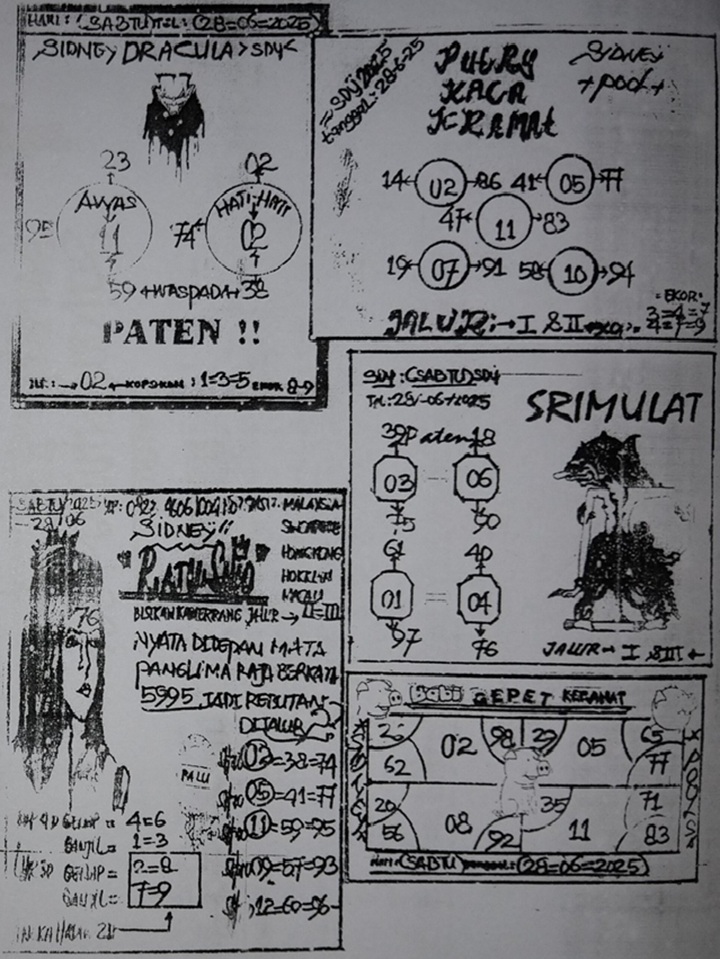 HARI: (SABTU) TGL: (28=06=2025)
SIDNEY DRACULA > SDY <
23
02
AWAS
11
HATI-HATI
02
95
74
59 WASPADA 38
PATEN !!
02 KOP 1=3=5 EKOR 8-9
SDY 2025
tanggal: 28-6-25
PUTRY
KACA
KRAMAT
SIDNEY
pool
14 02 86 41 05 77
47 11 83
19 07 91 58 10 94
EKOR:
3=4=7
4=7=9
JALUR: I & II
SDY: (SABTU) SDY
TGL: 28/-06/2025
SRIMULAT
39 Paten 18
03 06
75 50
61 40
01 04
97 76
JALUR I & III
SABTU
28/06
SIDNEY!!
MALAYSIA
SINGAPORE
HONGKONG
MACAU
76
JALUR II=III
NYATA DIDEPAN MATA
PANGLIMA RAJA BERKATA
5995 JADI REBUTAN
DIJALUR
02=38=74
05=41=77
11=59=95
=57=93
12=60=96
PALU
GENAP = 4=6
GANJIL = 1=3
GENAP = 2=8
GANJIL = 7=9
BABI GEPET KERAMAT
02 98 29 05 65
62 77
20 35 71
56 08 92 11 83
HARI (SABTU) (28=06=2025)